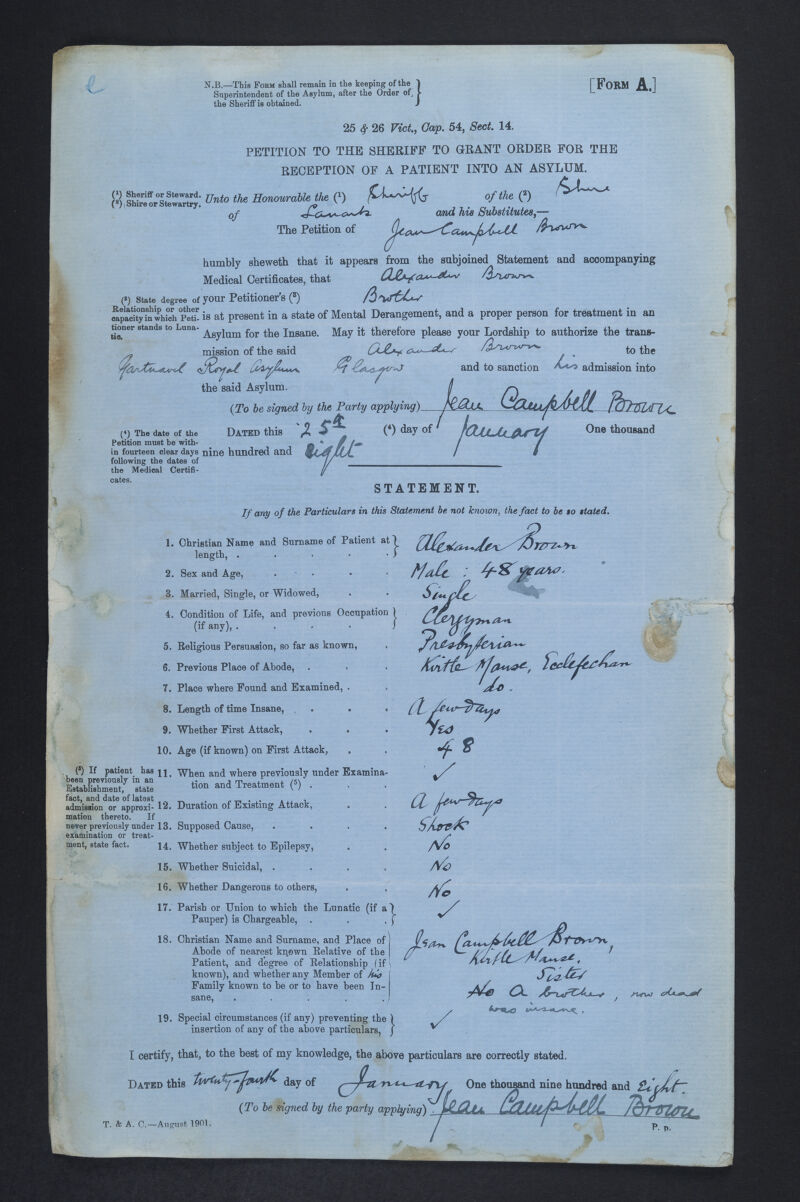 N.B.—This Form shall remain in the keeping of the
Superintendent of the Asylum, after the Order of
the Sheriff is obtained.
[Form A.]
25 & 26 Vict., Cap. 54, Sect. 14.
PETITION TO THE SHERIFF TO GRANT ORDER FOR THE
RECEPTION OF A PATIENT INTO AN ASYLUM.
(¹) Sheriff or Steward.
(²) Shire or Stewartry.
Unto the Honourable the (¹) Sheriff of the (²) Shire
of Lanark and his Substitutes,—
The Petition of Jean Campbell Brown
humbly sheweth that it appears from the subjoined Statement and accompanying
Medical Certificates, that Alexander Brown
(³) State degree of
Relationship or other
capacity in which Peti-
tioner stands to Luna-
tic.
your Petitioner's (³) Brother
is at present in a state of Mental Derangement, and a proper person for treatment in an
Asylum for the Insane. May it therefore please your Lordship to authorize the trans-
mission of the said Alexander Brown to the
Gartnavel Royal Asylum Glasgow and to sanction his admission into
the said Asylum.
(To be signed by the Party applying) Jean Campbell Brown
(⁴) The date of the
Petition must be with-
in fourteen clear days
following the dates of
the Medical Certifi-
cates.
Dated this 25th (⁴) day of January One thousand
nine hundred and eight
STATEMENT.
If any of the Particulars in this Statement be not known, the fact to be so stated.
1. Christian Name and Surname of Patient at
length, . . . . . Alexander Brown
2. Sex and Age, . . . . Male : 48 years.
3. Married, Single, or Widowed, . . Single
4. Condition of Life, and previous Occupation
(if any), . . . . . Clergyman
5. Religious Persuasion, so far as known, . Presbyterian
6. Previous Place of Abode, . . . Kirtle Manse, Ecclefechan
7. Place where Found and Examined, . . do.
8. Length of time Insane, . . . . A few days
9. Whether First Attack, . . . . Yes
10. Age (if known) on First Attack, . . 48
(⁵) If patient has
been previously in an
Establishment, state
fact, and date of latest
admission or approxi-
mation thereto. If
never previously under
examination or treat-
ment, state fact.
11. When and where previously under Examina-
tion and Treatment (⁵) . . . ✓
12. Duration of Existing Attack, . . A few days
13. Supposed Cause, . . . . Shock
14. Whether subject to Epilepsy, . . No
15. Whether Suicidal, . . . . No
16. Whether Dangerous to others, . . No
17. Parish or Union to which the Lunatic (if a
Pauper) is Chargeable, . . . ✓
18. Christian Name and Surname, and Place of
Abode of nearest known Relative of the
Patient, and degree of Relationship (if
known), and whether any Member of his
Family known to be or to have been In-
sane, . . . . .
Jean Campbell Brown,
Kirtle Manse,
Sister
No A brother, now dead
was insane.
19. Special circumstances (if any) preventing the
insertion of any of the above particulars, ✓
I certify, that, to the best of my knowledge, the above particulars are correctly stated.
Dated this twenty-fourth day of January One thousand nine hundred and Eight.
(To be signed by the party applying) Jean Campbell Brown
T. & A. C.—August 1901.
P. p.